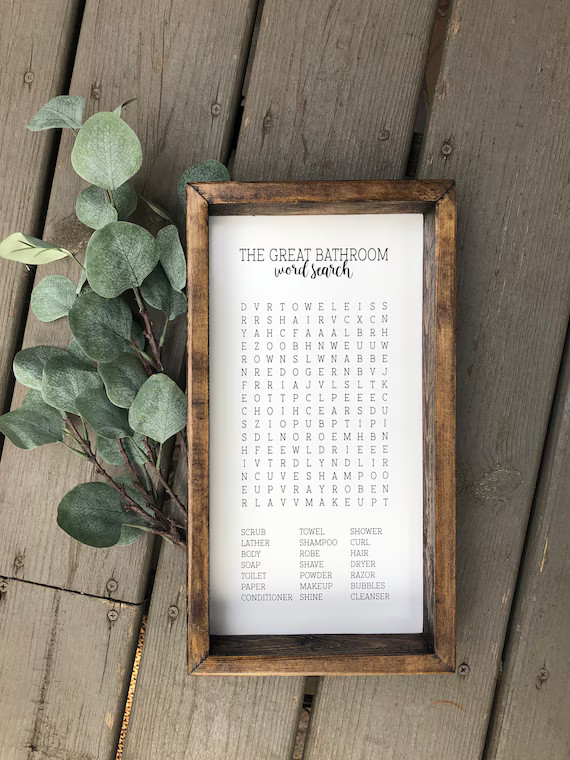 THE GREAT BATHROOM
word search
D V R T O W E L E I S S
R R S H A I R V C X C N
Y A H C F A A A L B R H
E Z O O B H N W E U U W
R O W N S L W N A B B E
N R E D O G E R N B V J
F R R I A J V L S L T K
E O T T P C L P E E C L
C H O I H C E A R S D U
S Z I O P U B P T I P I
S D L N O R O E M H B N
H F E E W L D R I E E L
I V T R D L Y N D L I R
N C U V E S H A M P O O
E U P V R A Y R O B E N
R L A V V M A K E U P T
SCRUB TOWEL SHOWER
LATHER SHAMPOO CURL
BODY ROBE HAIR
SOAP SHAVE DRYER
TOILET POWDER RAZOR
PAPER MAKEUP BUBBLES
CONDITIONER SHINE CLEANSER